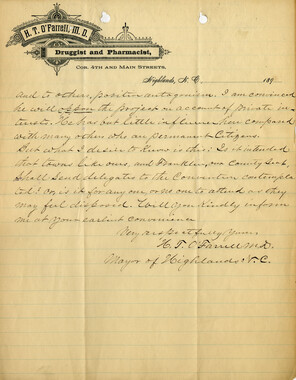 H. T. O'Farrell, M. D.
Druggist and Pharmacist,
COR. 4TH AND MAIN STREETS.
Highlands, N. C. 189
and to others, positive antagonism. I am convinced
he will oppose the project on account of private in
terests. He has but little influence here compared
with many others who are permanent Citizens
But what I desire to know is this: Is it intended
that towns like ours, and Franklin, our County Seat,
shall send delegates to the Convention contempla
ted? or is it for any one or no one to attend as they
may feel disposed. Will you kindly inform
me at your earliest convenience
Very respectfully Yours
H. T. O'Farrell M.D.
Mayor of Highlands N.C.